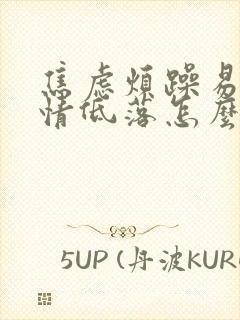 焦虑烦躁易
情低落怎麼
5UP (丹波KUR